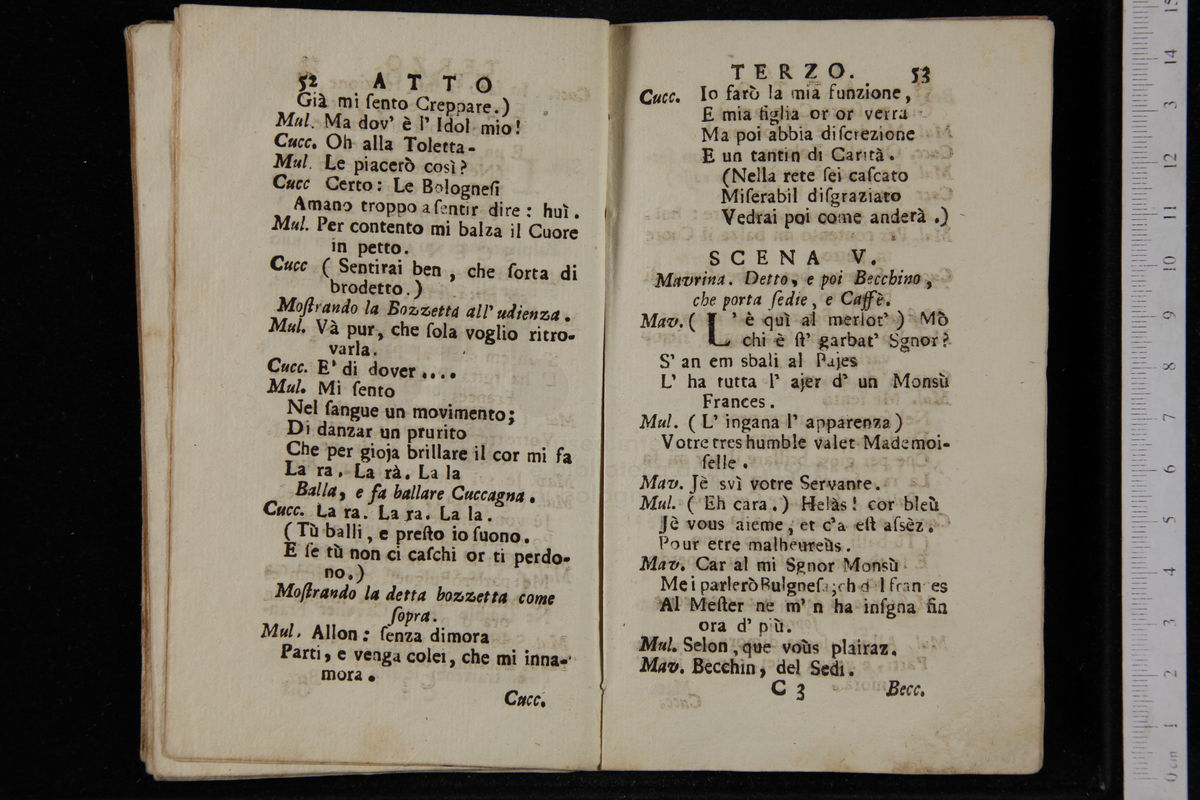 52 ATTO
Già mi ſento Creppare.)
Mul. Ma dov' è l' Idol mio!
Cucc. Oh alla Toletta-
Mul. Le piacerò così?
Cucc Certo: Le Bologneſi
Amano troppo a ſentir dire: huì.
Mul. Per contento mi balza il Cuore
in petto.
Cucc ( Sentirai ben, che ſorta di
brodetto.)
Moſtrando la Bozzetta all' udienza.
Mul. Và pur, che ſola voglio ritro-
varla.
Cucc. E' di dover....
Mul. Mi ſento
Nel ſangue un movimento;
Di danzar un prurito
Che per gioja brillare il cor mi fa
La ra. La rà. La la
Balla, e fa ballare Cuccagna.
Cucc. La ra. La ra. La la.
(Tù balli, e preſto io ſuono.
E ſe tù non ci caſchi or ti perdo-
no.)
Moſtrando la detta bozzetta come
ſopra.
Mul. Allon: ſenza dimora
Parti, e venga colei, che mi inna-
mora.
Cucc.
TERZO. 53
Cucc. Io farò la mia funzione,
E mia figlia or or verra
Ma poi abbia diſcrezione
E un tantin di Carità.
(Nella rete ſei caſcato
Miſerabil diſgraziato
Vedrai poi come anderà.)
SCENA V.
Mavrina. Detto, e poi Becchino,
che porta ſedie, e Caffè.
Mav. ( L' è quì al merlot') Mò
chi è ſt' garbat' Sgnor?
S' an em sbali al Pajes
L' ha tutta l' ajer d' un Monsù
Frances.
Mul. ( L' ingana l' apparenza)
Votre tres humble valet Mademoi-
ſelle.
Mav. Jè svì votre Servante.
Mul. ( Eh cara.) Helàs! cor bleù
Jè vous aieme, et c'a eſt aſsèz.
Pour etre malheureùs.
Mav. Car al mi Sgnor Monsù
Me i parlerò Bulgnefa; ch d l fran es
Al Meſter ne m' n ha inſgna fin
ora d' più.
Mul. Selon, que voùs plairaz.
Mav. Becchin, del Sedi.
C 3 Becc.